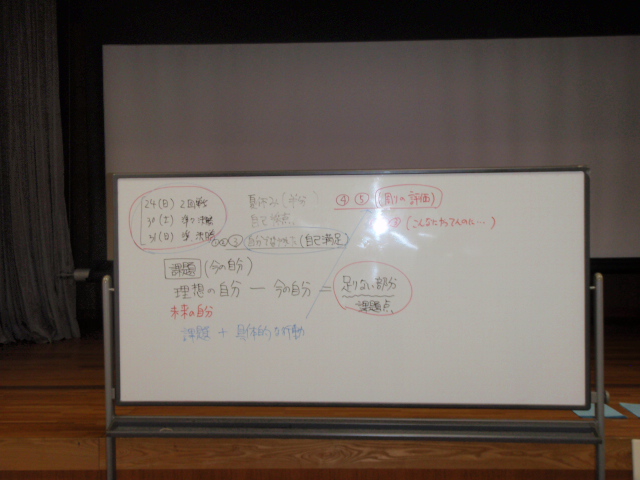 24(日) 2回戦
30(土) 準々決勝
31(日) 準、決勝
夏休み(半分)
④ ⑤ (周りの評価)
(こんなにやってんのに…)
(自己満足)
課題 (今の自分)
理想の自分 ー 今の自分 = 足りない部分
課題点、
未来の自分
課題 + 具体的な行動